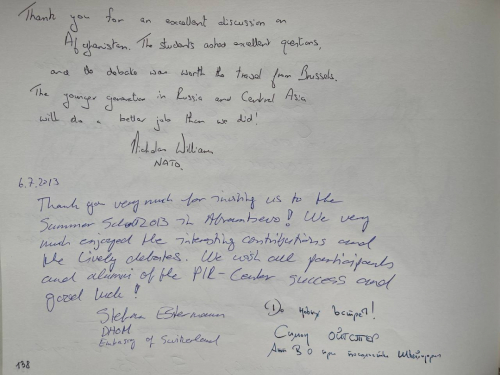 Thank you for an excellent discussion on
Afghanistan. The students asked excellent questions,
and the debate was worth the travel from Brussels.
The younger generation in Russia and Central Asia
will do a better job than we did!
Nicholas Williams
NATO.
6.7.2013
Thank you very much for inviting us to the
Summer School 2013 in Abramtsevo! We very
much enjoyed the interesting contributions and
the lively debates. We wish all participants
and alumni of the PIR-Center success and
good luck!
Stefan Estermann
Embassy of Switzerland
До новых встреч!
138